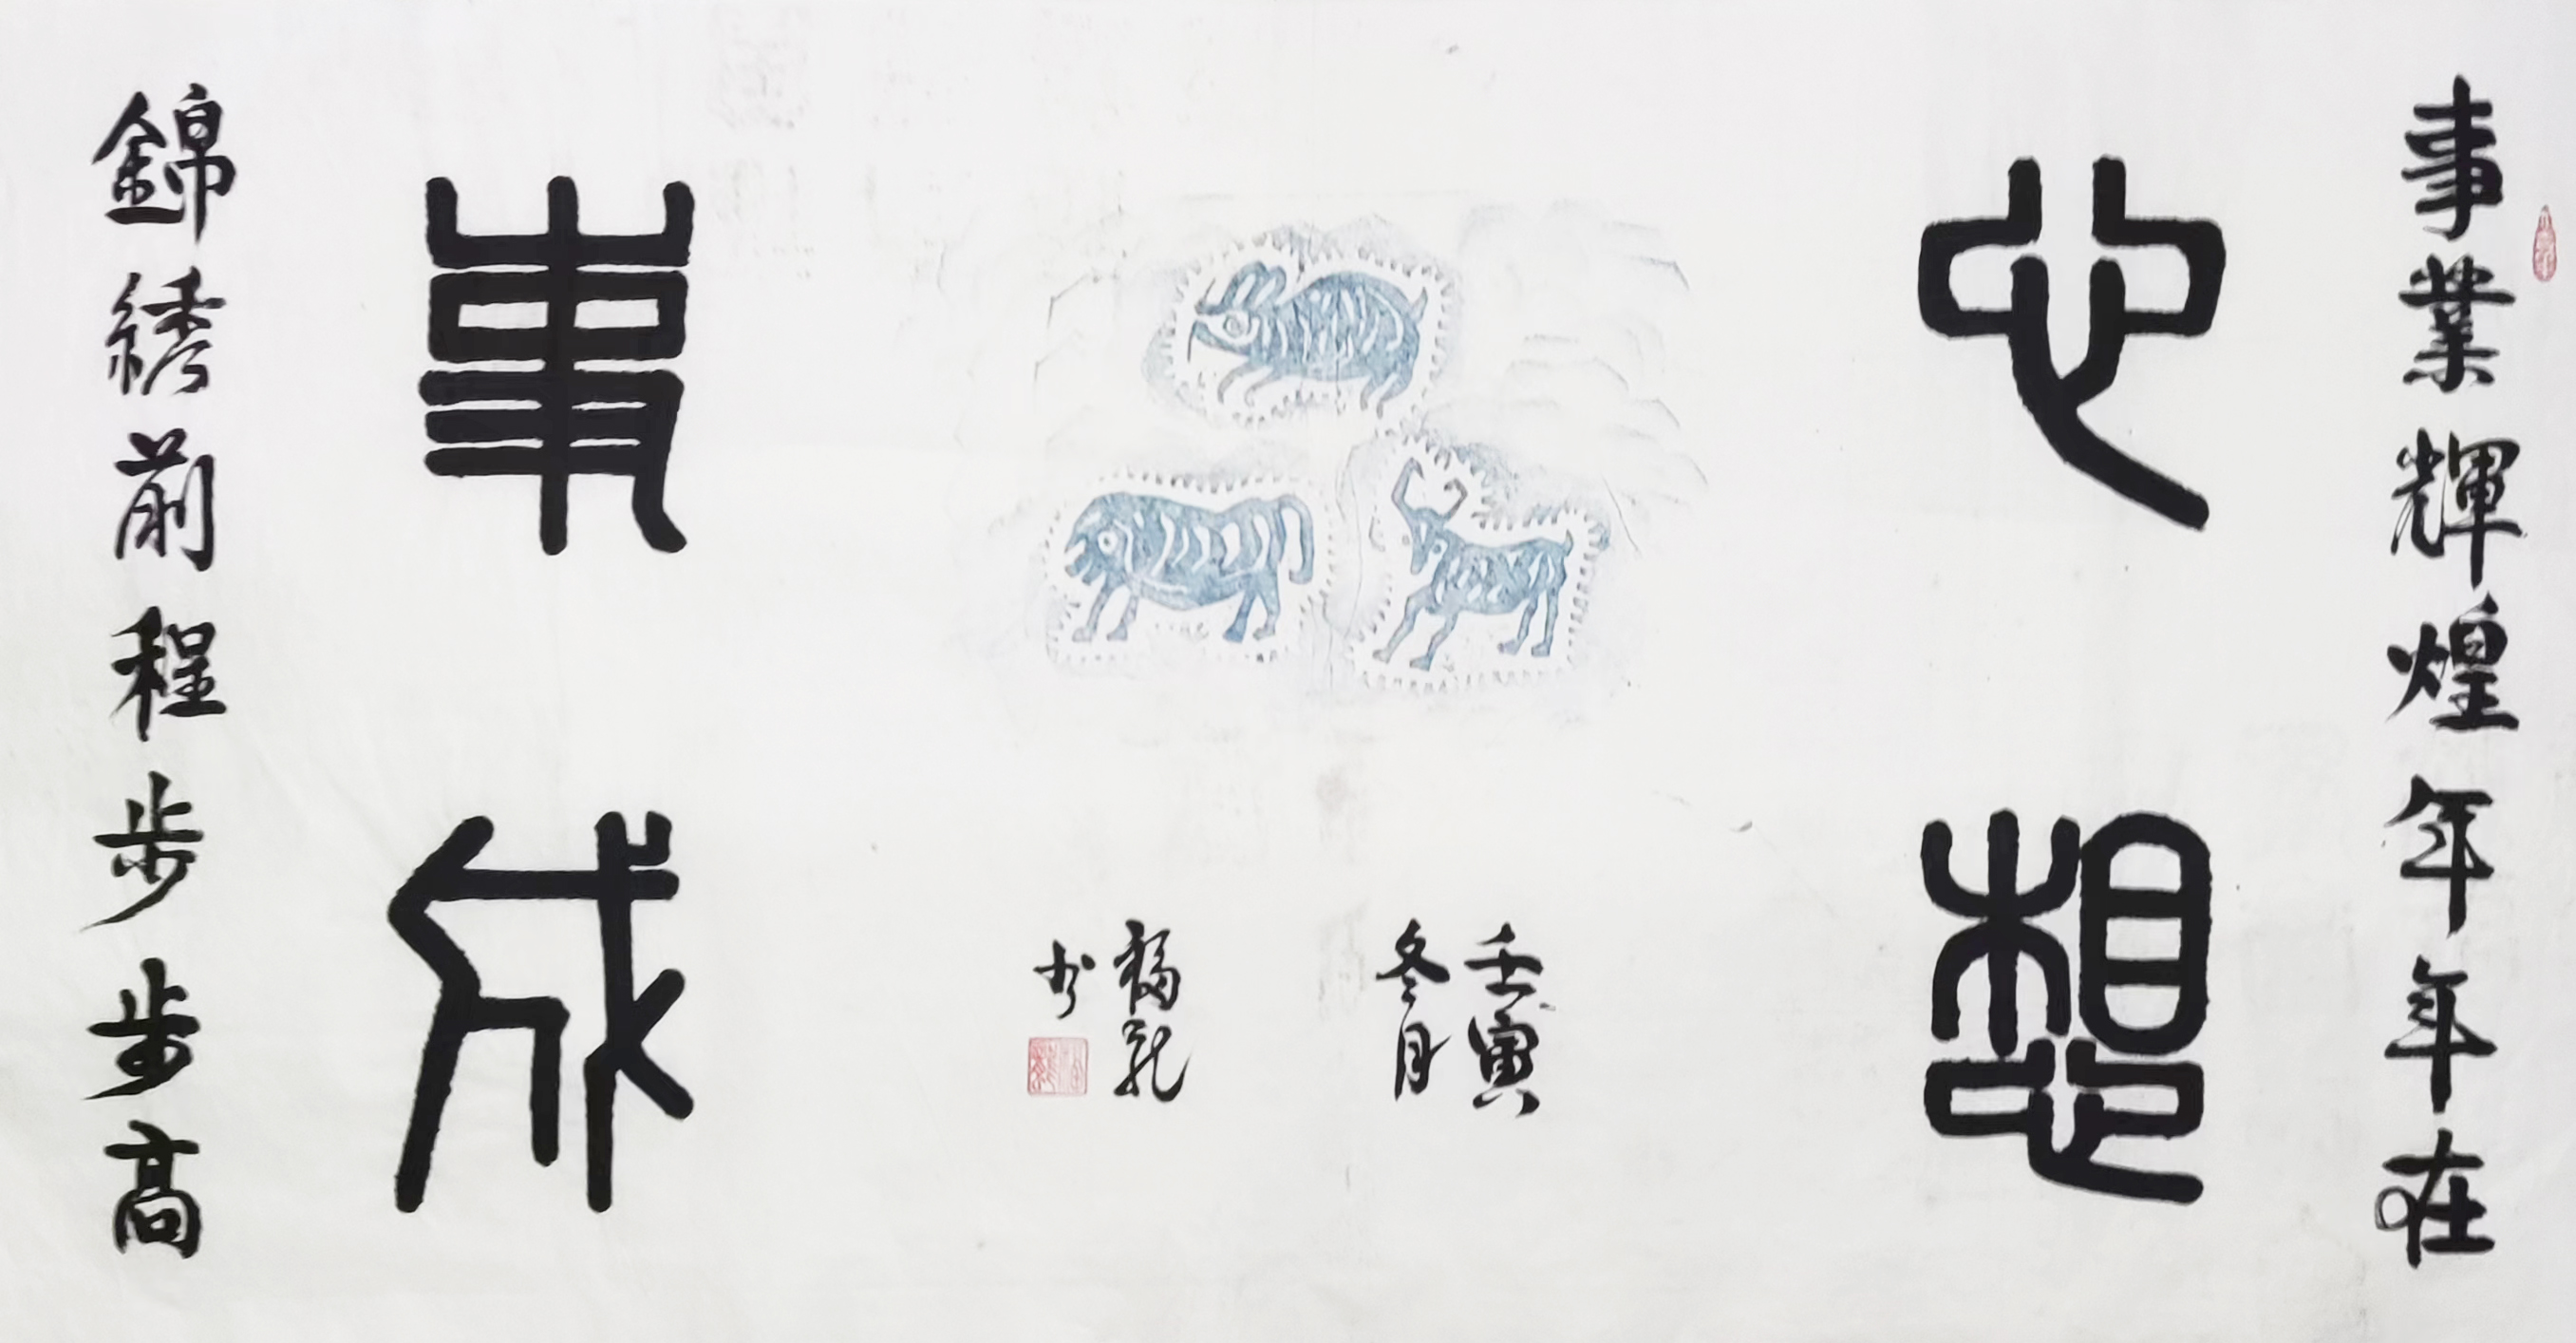 事業輝煌年年在
心想
壬寅
冬月
福龍
書
事成
錦綉前程步步高